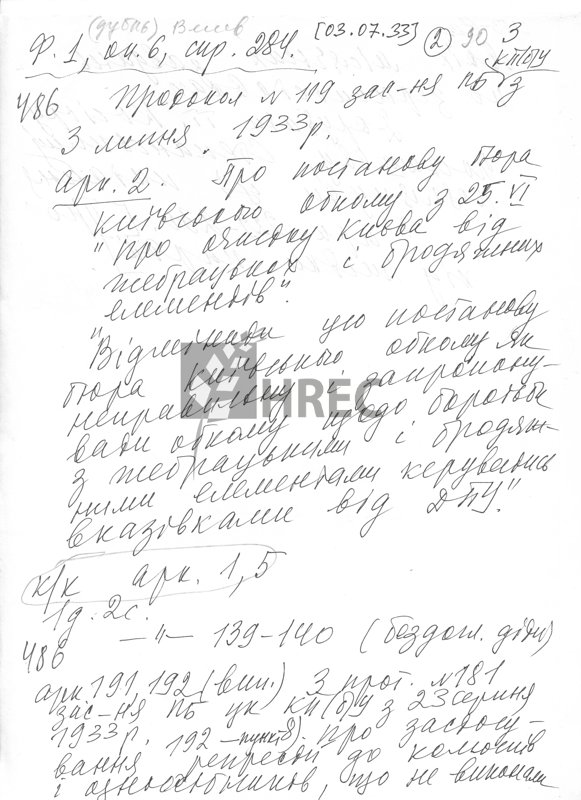 (дубль) Вилів [03.07.33] ② 90 3
Ф. 1, оп. 6, спр. 284. КП(б)У
486 Протокол № 119 зас-ня ПБ з
3 липня . 1933 р.
арк. 2. Про постанову бюра
київського обкому з 25.VI
"Про очистку Києва від
жебрацьких і бродяжних
елементів".
"Відмінити цю постанову
бюра київського обкому як
неправильну і запропону-
вати обкому щодо боротьби
з жебрацькими і бродяж-
ними елементами керуватись
вказівками від ДПУ."
HREC
к/к арк. 1, 5
1д. 2с.
486 —"— 139-140 (бездогл. діти)
арк 191, 192 (вип.) З прот. № 181
зас-ня ПБ ЦК КП(б)У з 23 серпня
1933 р. 192 – пункт 8). Про застосу-
вання репресій до колгоспів
і одноосібників, що не виконали